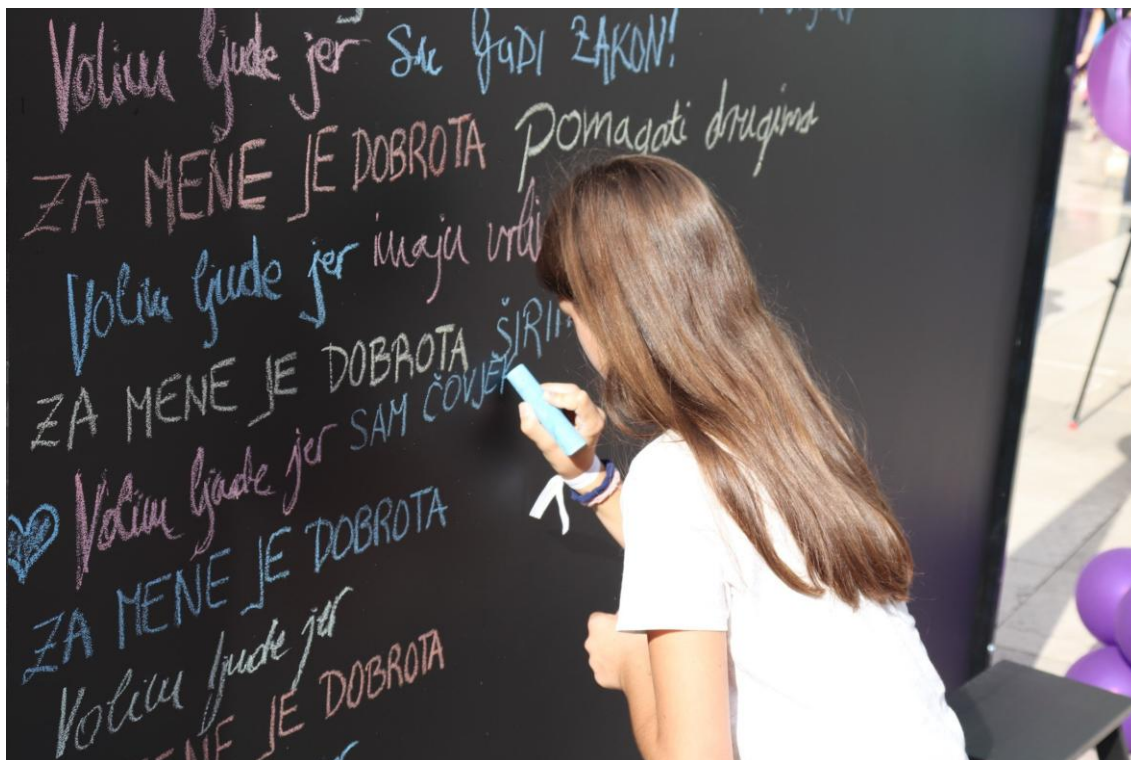 Volim ljude jer su ljudi ZAKON!
ZA MENE JE DOBROTA Pomagati drugima
Volim ljude jer imaju
ZA MENE JE DOBROTA
Volim ljude jer SAM ČOVJEK
ZA MENE JE DOBROTA
Volim ljude jer
MENE JE DOBROTA